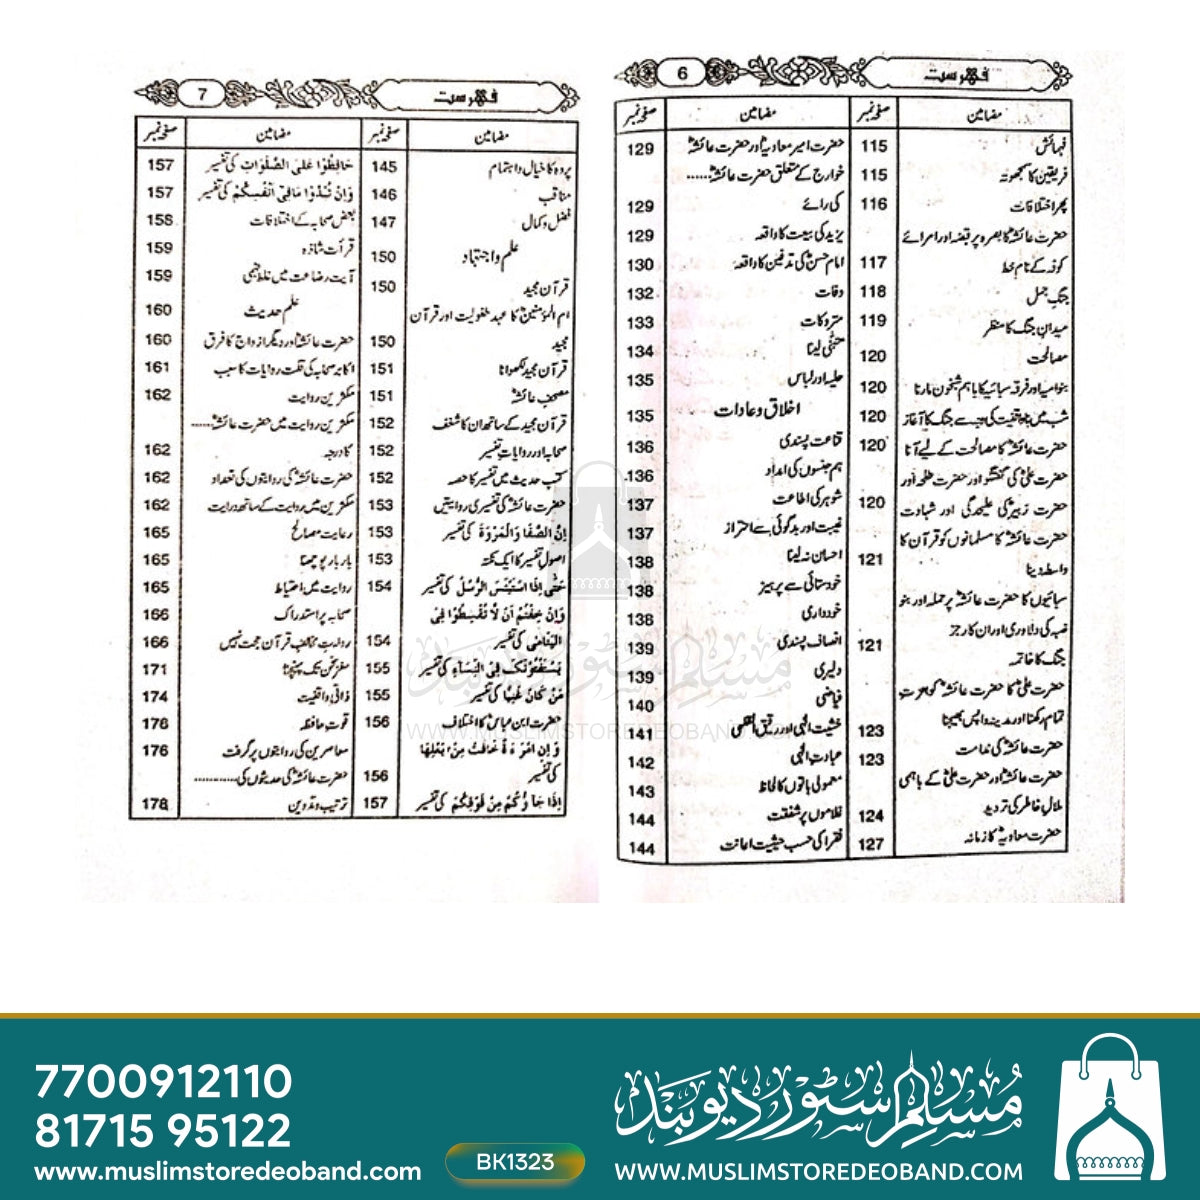 فہرست
6
مضامین
صفحہ نمبر
فہمائش
115
فریقین کا سمجھوتہ
115
پھر اختلافات
116
حضرت عائشہؓ کا بصرہ پر قبضہ اور امرائے
کوفہ کے نام خط
117
جنگِ جمل
118
میدانِ جنگ کا منظر
119
مصالحت
120
بنو امیہ اور فرقہ سبائیہ کا باہم شبخون مارنا
120
شب میں ناواقفیت کی وجہ سے جنگ کا آغاز
120
حضرت عائشہؓ کا مصالحت کے لیے آنا
120
حضرت علیؓ کی گفتگو اور حضرت طلحہؓ اور
حضرت زبیرؓ کی علیحدگی اور شہادت
120
حضرت عائشہؓ کا مسلمانوں کو قرآن کا
واسطہ دینا
121
سبائیوں کا حضرت عائشہؓ پر حملہ اور بنو
ضبہ کی دلاوری اور ان کا رجز
121
جنگ کا خاتمہ
حضرت علیؓ کا حضرت عائشہؓ کو عزت
تمام رکھنا اور مدینہ واپس بھیجنا
123
حضرت عائشہؓ کی ندامت
123
حضرت عائشہؓ اور حضرت علیؓ کے باہمی
ملالِ خاطر کی تردید
124
حضرت معاویہؓ کا زمانہ
127
مضامین
صفحہ نمبر
حضرت امیر معاویہؓ اور حضرت عائشہؓ
129
خوارج کے متعلق حضرت عائشہؓ......
کی رائے
129
یزید کی بیعت کا واقعہ
129
امام حسنؓ کی تدفین کا واقعہ
130
وفات
132
متروکات
133
متبنّٰی لینا
134
حلیہ اور لباس
135
اخلاق و عادات
135
قناعت پسندی
136
ہم جنسوں کی امداد
136
شوہر کی اطاعت
137
غیبت اور بدگوئی سے احتراز
137
احسان نہ لینا
138
خودستائی سے پرہیز
138
خودداری
138
انصاف پسندی
139
دلیری
139
فیاضی
140
خشیتِ الٰہی اور رقیق القلبی
141
عبادتِ الٰہی
142
معمولی باتوں کا لحاظ
143
غلاموں پر شفقت
144
فقرا کی حسبِ حیثیت اعانت
144
فہرست
7
مضامین
صفحہ نمبر
پردہ کا خیال و اہتمام
145
مناقب
146
فضل و کمال
147
علم و اجتہاد
150
قرآن مجید
150
ام المؤمنینؓ کا عہدِ طفولیت اور قرآن
مجید
150
قرآن مجید لکھوانا
151
مصحفِ عائشہؓ
151
قرآن مجید کے ساتھ ان کا شغف
152
صحابہ اور روایاتِ تفسیر
152
کتبِ حدیث میں تفسیر کا حصہ
152
حضرت عائشہؓ کی تفسیری روایتیں
153
اِنَّ الصَّفَا وَالْمَرْوَةَ کی تفسیر
153
اصولِ تفسیر کا ایک نکتہ
153
حَتّٰی اِذَا اسْتَيْئَسَ الرُّسُلُ کی تفسیر
154
وَاِنْ خِفْتُمْ اَنْ لَّا تُقْسِطُوْا فِی
الْيَتَامٰی کی تفسیر
154
يَسْتَفْتُوْنَكَ فِی النِّسَاءِ کی تفسیر
155
مَنْ كَانَ غَنِيًّا کی تفسیر
155
حضرت ابن عباسؓ کا اختلاف
156
وَاِنِ امْرَءَةٌ خَافَتْ مِنْ بَعْلِهَا
کی تفسیر
156
اِذَا جَاؤُكُمْ مِنْ فَوْقِكُمْ کی تفسیر
157
مضامین
صفحہ نمبر
حَافِظُوْا عَلَی الصَّلَوَاتِ کی تفسیر
157
وَاِنْ تُبْدُوْا مَا فِیْ اَنْفُسِكُمْ کی تفسیر
157
بعض صحابہ کے اختلافات
158
قرأتِ شاذہ
159
آیتِ رضاعت میں غلط فہمی
159
علمِ حدیث
160
حضرت عائشہؓ اور دیگر ازواج کا فرق
160
اکابر صحابہ کی قلتِ روایات کا سبب
161
مکثرینِ روایت
162
مکثرینِ روایت میں حضرت عائشہؓ......
کا درجہ
162
حضرت عائشہؓ کی روایتوں کی تعداد
162
مکثرین میں روایت کے ساتھ درایت
162
رعایتِ مصالح
165
بار بار پوچھنا
165
روایت میں احتیاط
165
صحابہ پر استدراک
166
روایتِ مخالفِ قرآن حجت نہیں
166
مغزِ سخن تک پہنچنا
171
ذاتی واقفیت
174
قوتِ حافظہ
176
معاصرین کی روایتوں پر گرفت
176
حضرت عائشہؓ کی حدیثوں کی............
ترتیب و تدوین
178
مسلم سٹور دیوبند
WWW.MUSLIMSTOREDEOBAND.COM
7700912110
81715 95122
www.muslimstoredeoband.com
BK1323
مسلم سٹور دیوبند
WWW.MUSLIMSTOREDEOBAND.COM